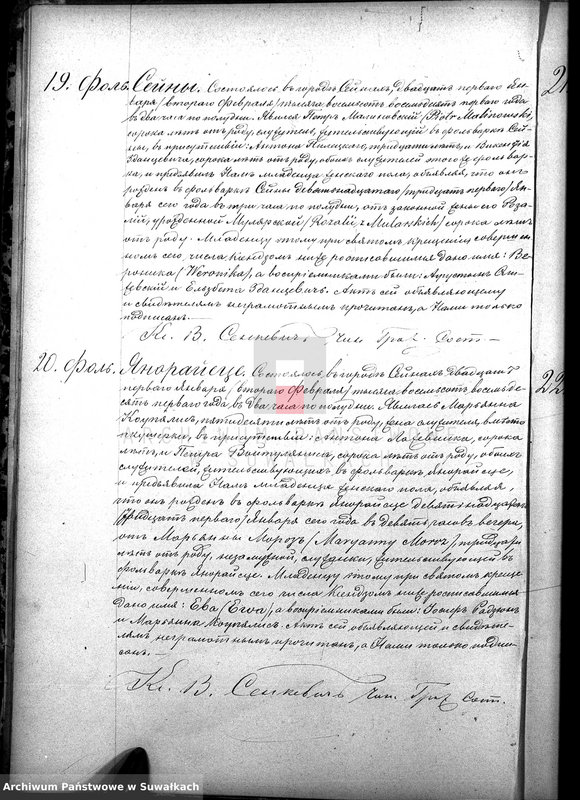 19. Фоль. Сейны. Состоялось въ городѣ Сейнахъ, двадцать перваго Ян-
варя /втораго Февраля/ тысяча восемьсотъ восемьдесятъ перваго года
въ два часа по полудни. Явился Петръ Малиновскій /Piotr Malinowski/,
сорока лѣтъ отъ роду, служитель, жительствующій въ фольваркѣ Сей-
ны, въ присутствіи: Антона лѣтъ, и Викентія
Зданцевича, сорока лѣтъ отъ роду, обоихъ служителей этого же фольвар-
ка, и предъявилъ Намъ младенца женскаго пола, объявляя, что онъ
рожденъ въ фольваркѣ Сейны девятнадцатаго /тридцать перваго/ Ян-
варя сего года въ три часа по полудни, отъ законной жены его Роза-
ліи, урожденной Мулярской /Rozalii z Mularskich/ сорока лѣтъ
отъ роду. Младенцу этому при святомъ крещеніи совершен-
номъ сего числа Ксендзомъ ниже росписавшимся дано имя: Ве-
роника /Weronika/, а воспріемниками были:
и Ельзбета Зданцевичъ. Актъ сей объявляющему
и свидѣтелямъ неграмотнымъ прочитанъ, а Нами только
подписанъ.—
Кс. В. Сенкевичъ Чин. Граж. Сост.—
20. Фоль. Янорайсце. Состоялось въ городѣ Сейнахъ двадцать
перваго Января, /втораго Февраля/ тысяча восемьсотъ восемьде-
сятъ перваго года, въ два часа по полудни. Явилась Марьянна
пятидесяти лѣтъ отъ роду, жена служителя, вмѣсто
акушерки, въ присутствіи: Антона сорока
лѣтъ, и Петра сорока лѣтъ отъ роду, обоихъ
служителей, жительствующихъ въ фольваркѣ Янорайсце,
и предъявила Намъ младенца женскаго пола, объявляя,
что онъ рожденъ въ фольваркѣ Янорайсце девятнадцатаго
/тридцать перваго/ Января сего года въ девять часовъ вечера,
отъ Марьянны Морозъ /Maryanny Moroz/ тридцати
лѣтъ отъ роду, незамужной, служанки, жительствующей въ
фольваркѣ Янорайсце. Младенцу этому при святомъ креще-
ніи, совершенномъ сего числа Ксендзомъ ниже росписавшимся
дано имя: Ева /Ewa/, а воспріемниками были:
и Марьянна Актъ сей объявляющей и свидѣте-
лямъ неграмотнымъ прочитанъ, а Нами только подпи-
санъ.—
Кс. В. Сенкевичъ Чин. Граж. Сост.
21
22
Archiwum Państwowe w Suwałkach